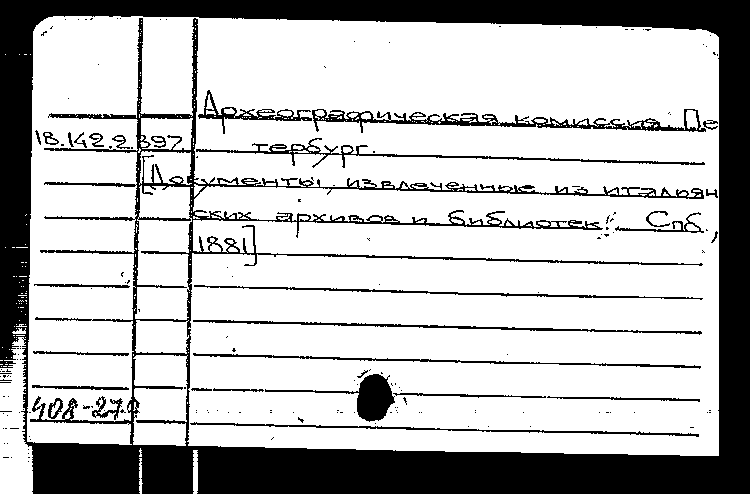 Археографическая комиссия. Пе
18.142.2.397
тербург.
[Документы, извлеченные из итальян
ских архивов и библиотек. Спб.,
1881]
408-279